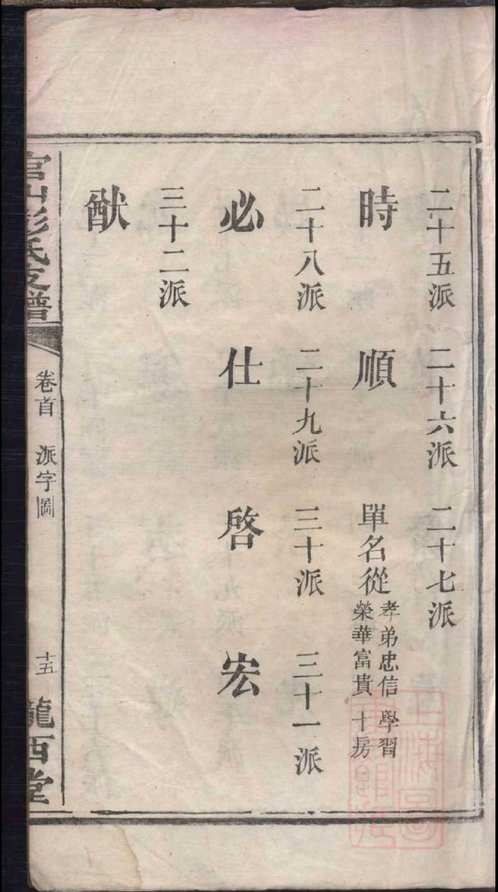 二十五派 二十六派 二十七派
時 順 單名從 孝弟忠信 學習
榮華富貴 十房
二十八派 二十九派 三十派 三十一派
必 仕 啓 宏
三十二派
猷
官山彭氏支譜 卷首 派字圖 十五 隴西堂
上海圖